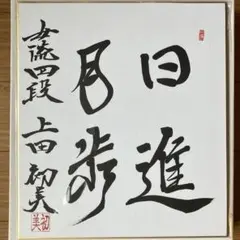 日進
月歩
女流四段 上田初美